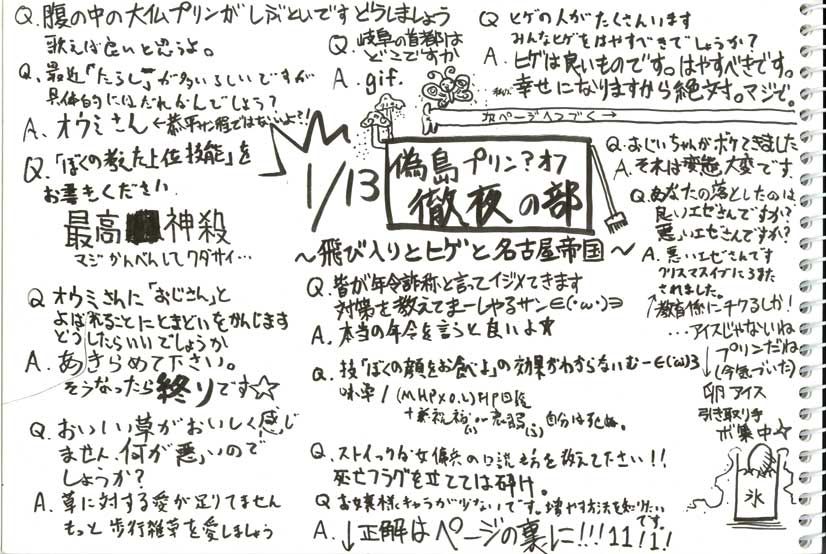 Q. 腹の中の大仏プリンがしぶといですどうしましょう
歌えば良いと思うよ。
Q. 最近「たらし」が多いらしいですが
具体的にはだれなんでしょう?
A. オウミさん
Q.「ぼくの考えた上位技能」を
お書きください
最高 神殺
マジかんべんしてクダサイ…
Q オウミさんに「おじさん」と
よばれることにとまどいをかんじます
どうしたらいいでしょうか
A. あきらめて下さい。
そうなったら終りです☆
Q. おいしい草がおいしく感じ
ません。何が悪いので
しょうか?
A. 草に対する愛が足りてません
もっと歩行雑草を愛しましょう
Q. 岐阜の首都は
どこですか
A. gif.
Q ヒゲの人がたくさんいます
みんなヒゲをはやすべきでしょうか?
A. ヒゲは良いものです。はやすべきです。
幸せになりますから絶対。マジで。
次ページへつづく→
1/13
偽島プリン?オフ
徹夜の部
~飛び入りとヒゲと名古屋帝国~
Q. 皆が年令詐称と言ってイジメてきます
対策を教えてまーしやるサン∈(・ω・)∋
A. 本当の年令を言うと良いよ☆
Q. 技「ぼくの顔をお食べよ」の効果がわからないむー∈(・ω・)3
味単/(MHP×0.1)HP回復
自分は死ぬ。
Q. ストイックな女傭兵の口説き方を教えて下さい!!
死亡フラグを立てては砕け。
Q お嬢様キャラが少ないです。増やす方法を知りたい
です。
A. ↓正解はページの裏に!!!11!1!
Q. おじいちゃんがボケてきました
A. それは変態大変です.
Q. あなたの落としたのは
良いエゼさんですか?
悪いエゼさんですか?
A. 悪いエゼさんです
クリスマスイブにろまた
されました。
↑教育係にチクるしか!
…アイスじゃないね
プリンだね
(今気づいた)
卵アイス
引き取り手
ボ集中☆
氷